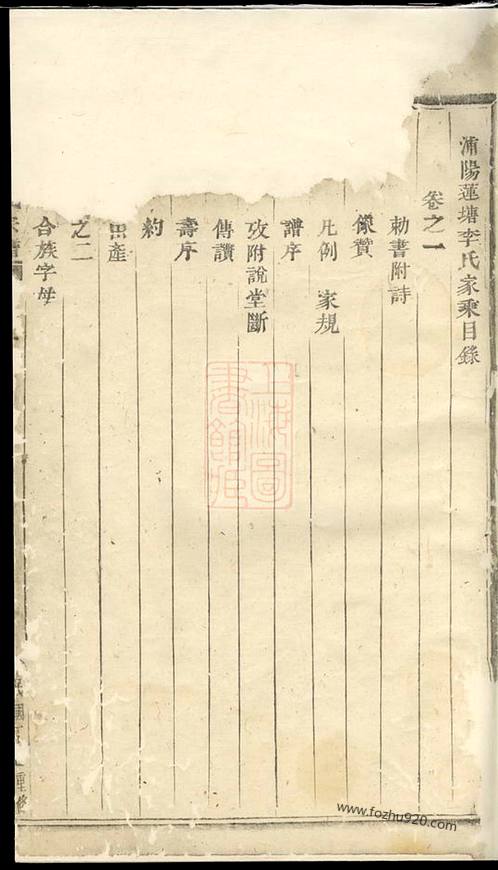 浦陽蓮塘李氏家乘目錄
卷之一
勅書附詩
像贊
凡例 家規
譜序
攷附說堂斷
傳讚
壽序
約
田產
之二
合族字母
譜
民國 重修
上海圖書館藏
www.fozhu920.com